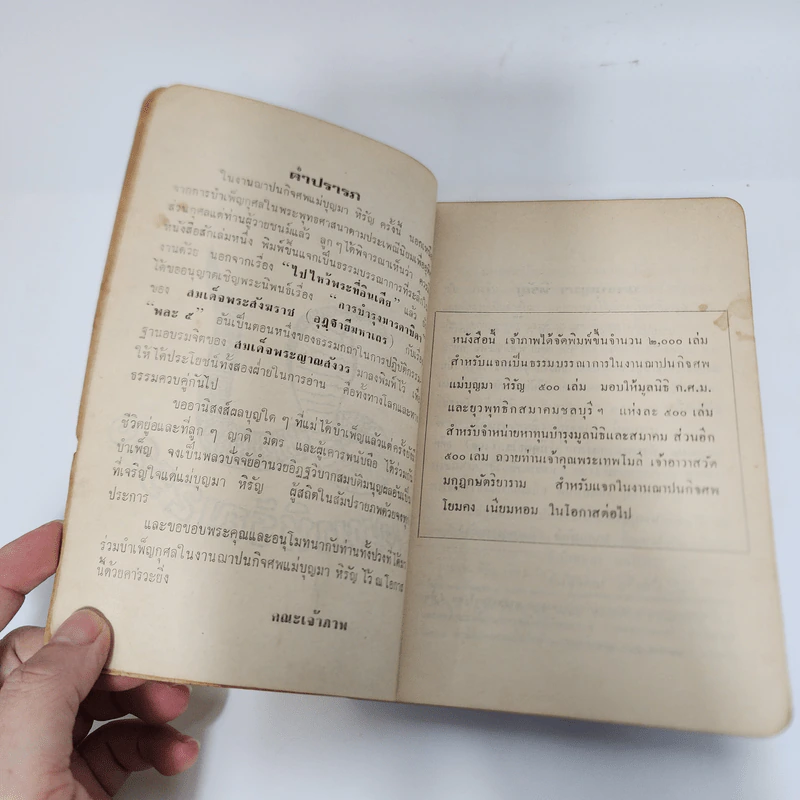 คำปรารภ
ในงานฌาปนกิจศพแม่บุญมา หิรัญ ครั้งนี้
จากการบำเพ็ญกุศลในพระพุทธศาสนาตามประเพณีนิยมเพื่ออุทิศ
ส่วนกุศลแด่ท่านผู้วายชนม์แล้ว ลูก ๆ ได้พิจารณาเห็นว่า
หนังสือสักเล่มหนึ่ง พิมพ์ขึ้นแจกเป็นธรรมบรรณาการที่ระลึกใน
งานด้วย นอกจากเรื่อง “ไปไหว้พระที่อินเดีย” แล้ว
ได้ขออนุญาตเชิญพระนิพนธ์เรื่อง “การบำรุงมารดาบิดา”
ของ สมเด็จพระสังฆราช (อุฏฺฐายีมหาเถร)
“พละ ๕” อันเป็นตอนหนึ่งของธรรมกถาในการปฏิบัติกรรม
ฐานอบรมจิตของ สมเด็จพระญาณสังวร มาลงพิมพ์ไว้
ให้ได้ประโยชน์ทั้งสองฝ่ายในการอ่าน คือทั้งทางโลกและทาง
ธรรมควบคู่กันไป
ขออานิสงส์ผลบุญใด ๆ ที่แม่ได้บำเพ็ญแล้วแต่ครั้งยังมี
ชีวิตอยู่และที่ลูก ๆ ญาติ มิตร และผู้เคารพนับถือ ได้ร่วมกัน
บำเพ็ญ จงเป็นพลวปัจจัยอำนวยอิฏฐวิบากสมบัติมนุญผลอันเป็น
ที่เจริญใจแด่แม่บุญมา หิรัญ ผู้สถิตในสัมปรายภพด้วยจงทุก
ประการ
และขอขอบพระคุณและอนุโมทนากับท่านทั้งปวงที่ได้มา
ร่วมบำเพ็ญกุศลในงานฌาปนกิจศพแม่บุญมา หิรัญ ไว้ ณ โอกาส
นี้ด้วยคารวะยิ่ง
คณะเจ้าภาพ
หนังสือนี้ เจ้าภาพได้จัดพิมพ์ขึ้นจำนวน ๒,๐๐๐ เล่ม
สำหรับแจกเป็นธรรมบรรณาการในงานฌาปนกิจศพ
แม่บุญมา หิรัญ ๕๐๐ เล่ม มอบให้มูลนิธิ ก.ศ.ม.
และยุวพุทธิกสมาคมชลบุรีฯ แห่งละ ๕๐๐ เล่ม
สำหรับจำหน่ายหาทุนบำรุงมูลนิธิและสมาคม ส่วนอีก
๕๐๐ เล่ม ถวายท่านเจ้าคุณพระเทพโมลี เจ้าอาวาสวัด
มกุฏกษัตริยาราม สำหรับแจกในงานฌาปนกิจศพ
โยมคง เนียมหอม ในโอกาสต่อไป